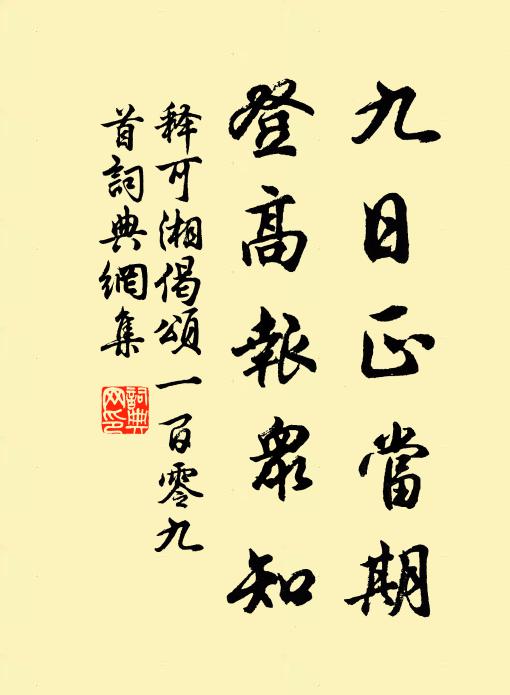 九日正當期
登高報眾知
釋可湘偈頌一百零九
首詞典網集
詞典
网印